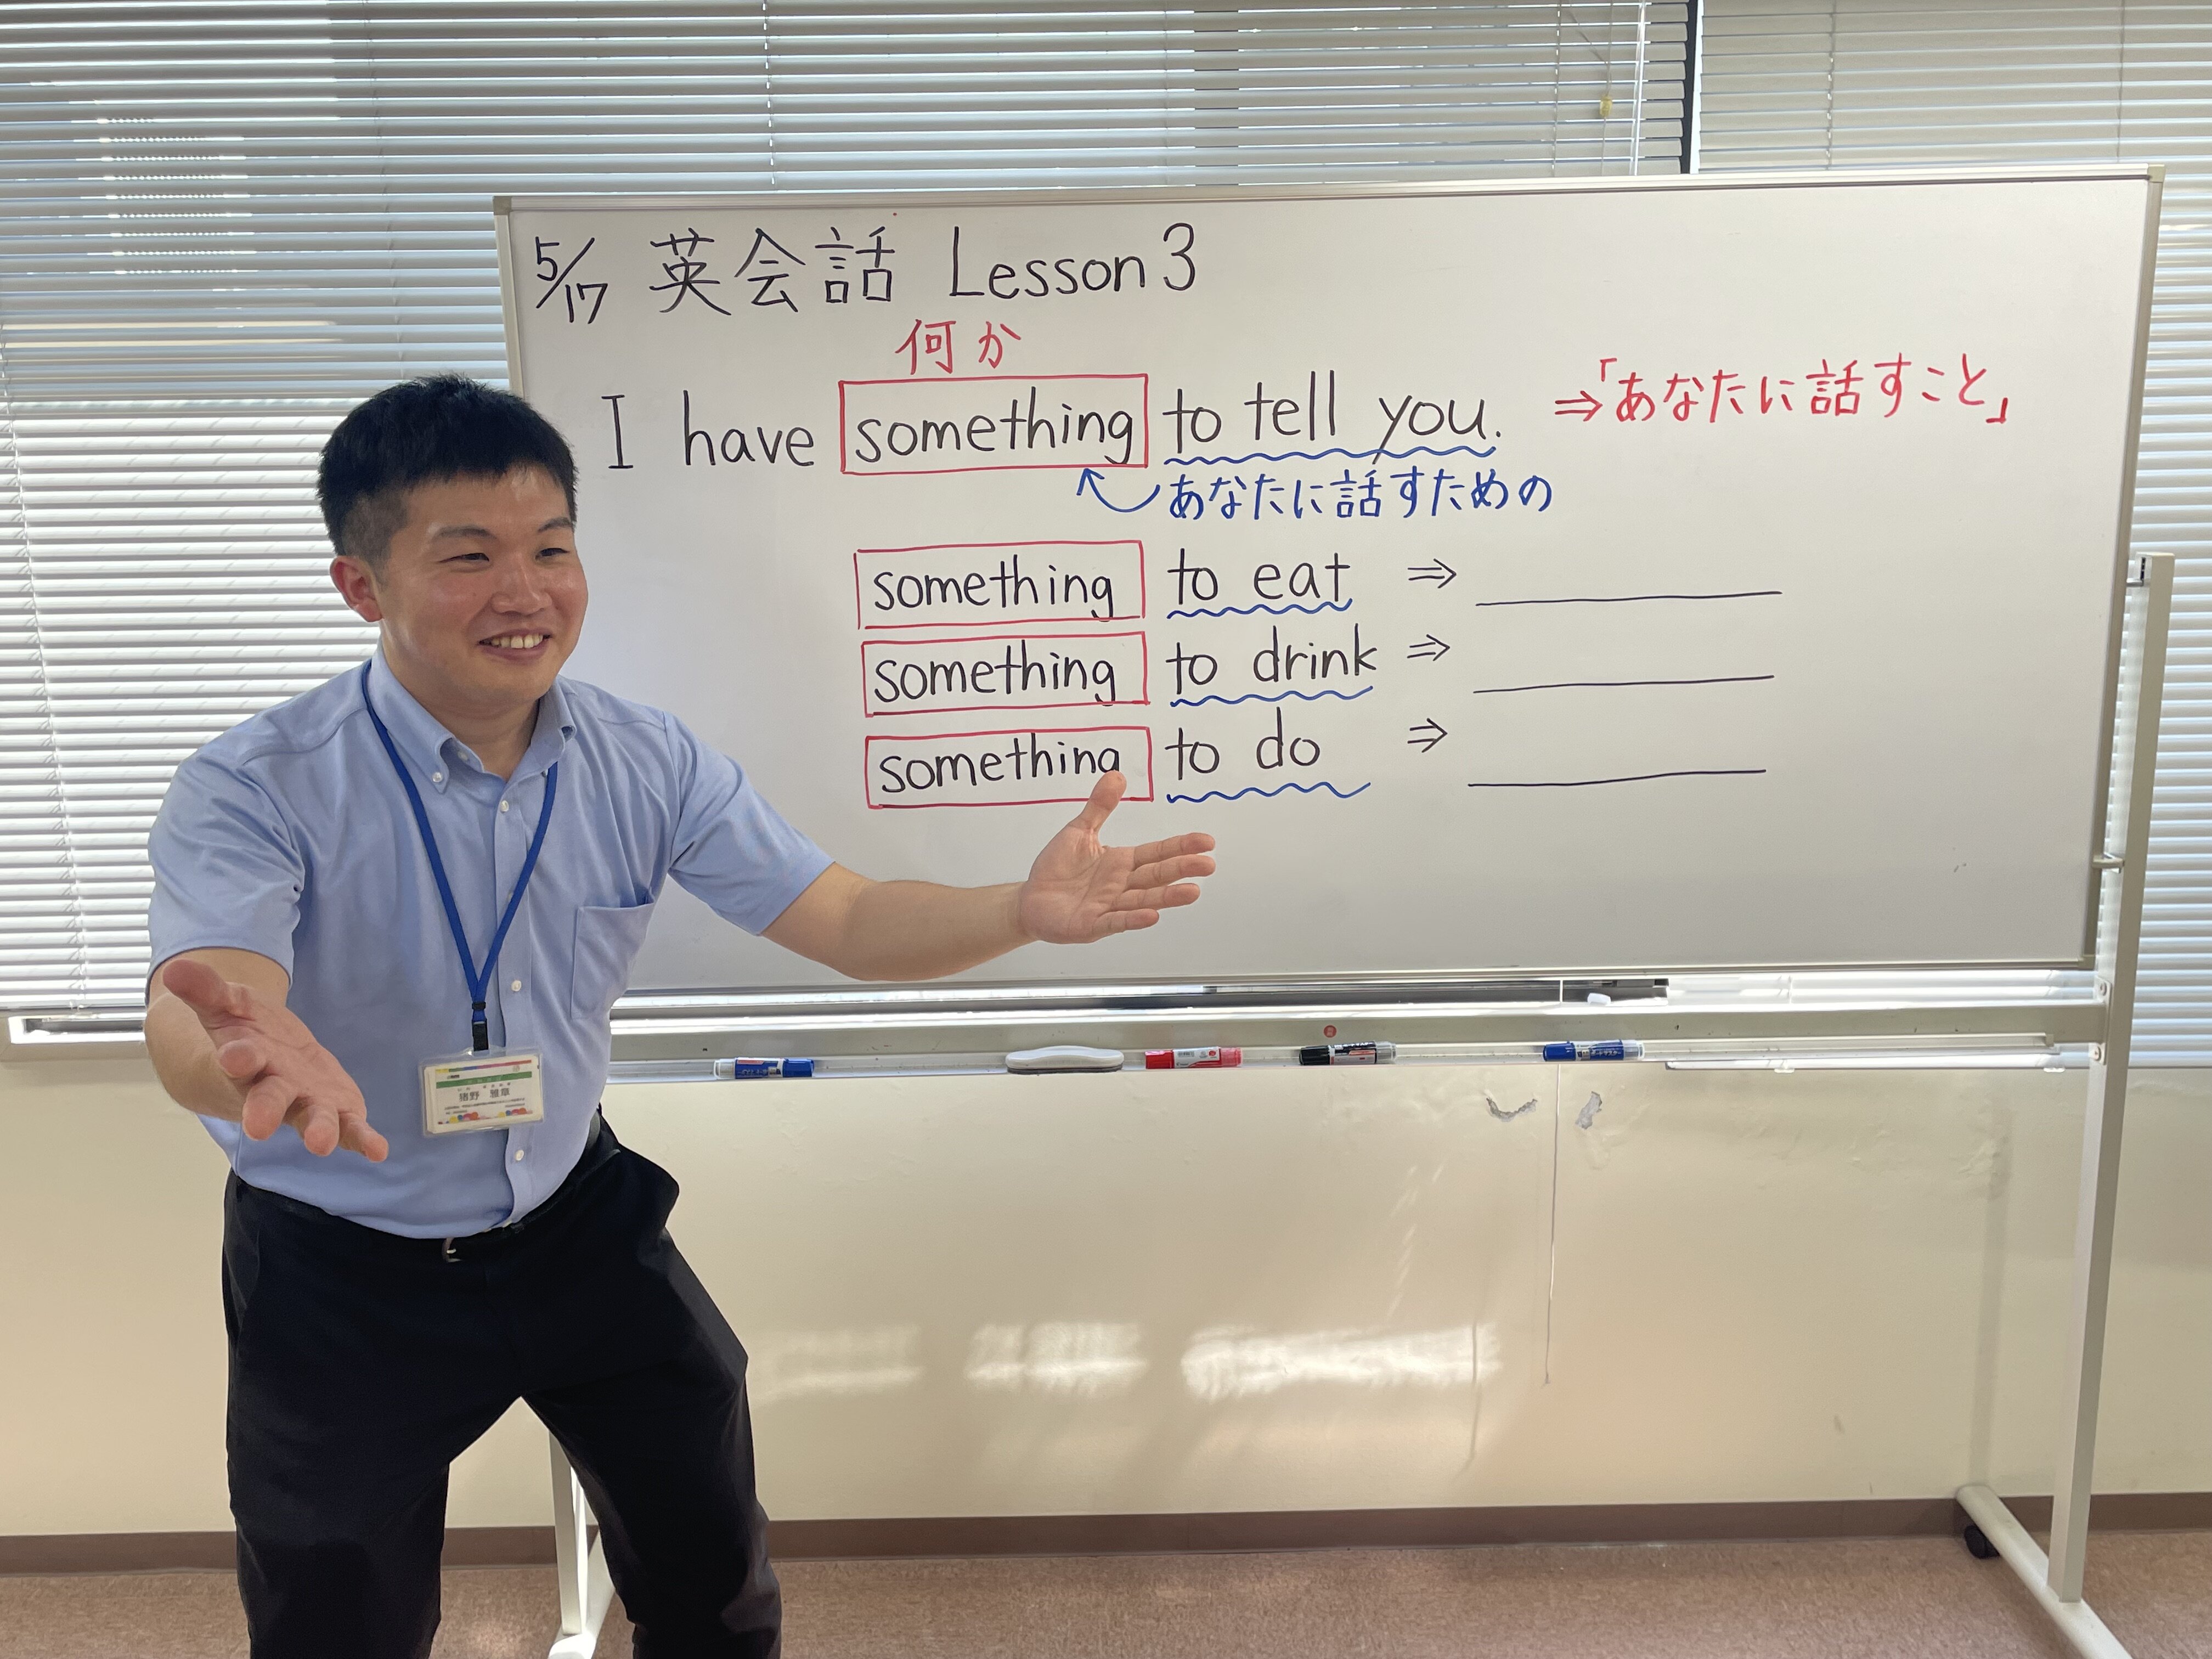 5/17 英会話 Lesson 3
何か
I have something to tell you. ⇒「あなたに話すこと」
あなたに話すための
something to eat ⇒
something to drink ⇒
something to do ⇒
猪野 雅章